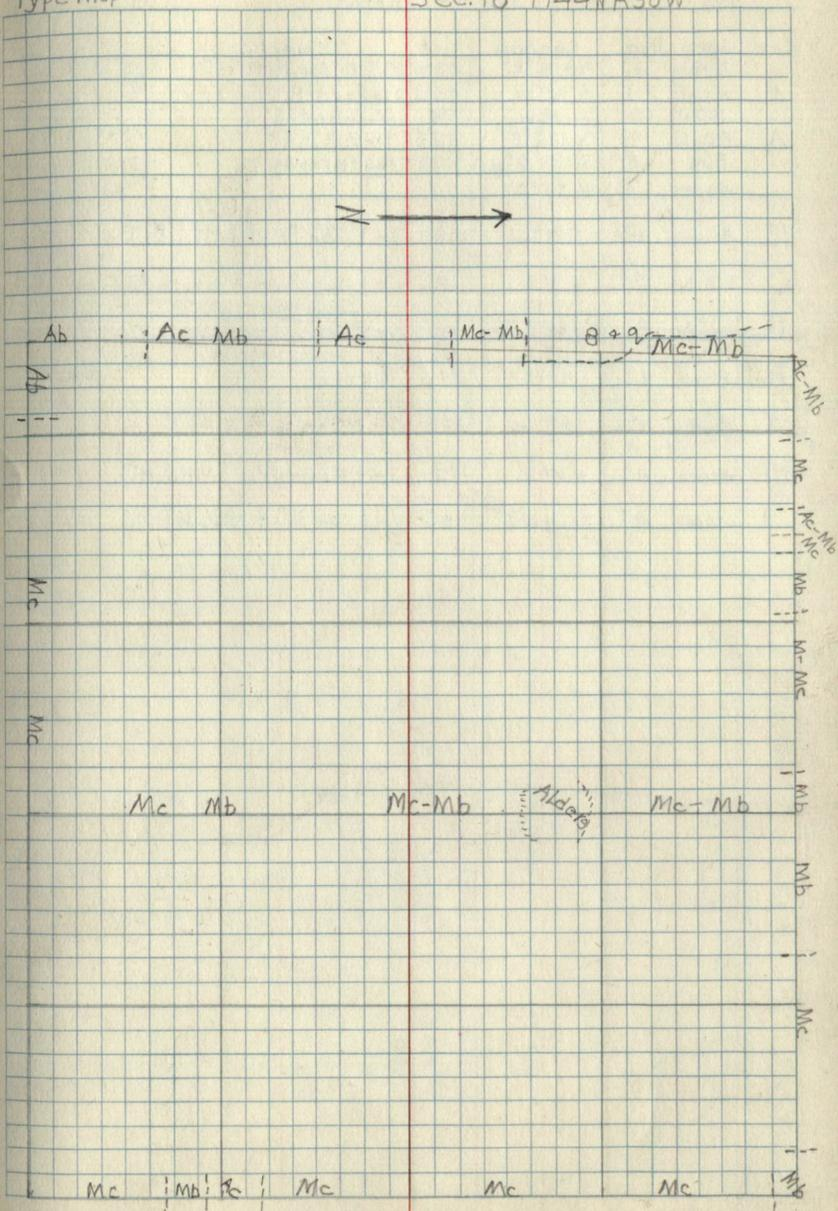 Type Map
Sec. 16 T144N R36W
N
Ab Ac Mb Ac Mc-Mb Mc-Mb
Ab
Ac-Mb
Mc
Ac-Mb
Mc
Mb
Mc
M-Mc
Mc
Mb
Mc Mb Mc-Mb Alders Mc-Mb
Mb
Mc
Mc Mb Mc Mc Mc Mb